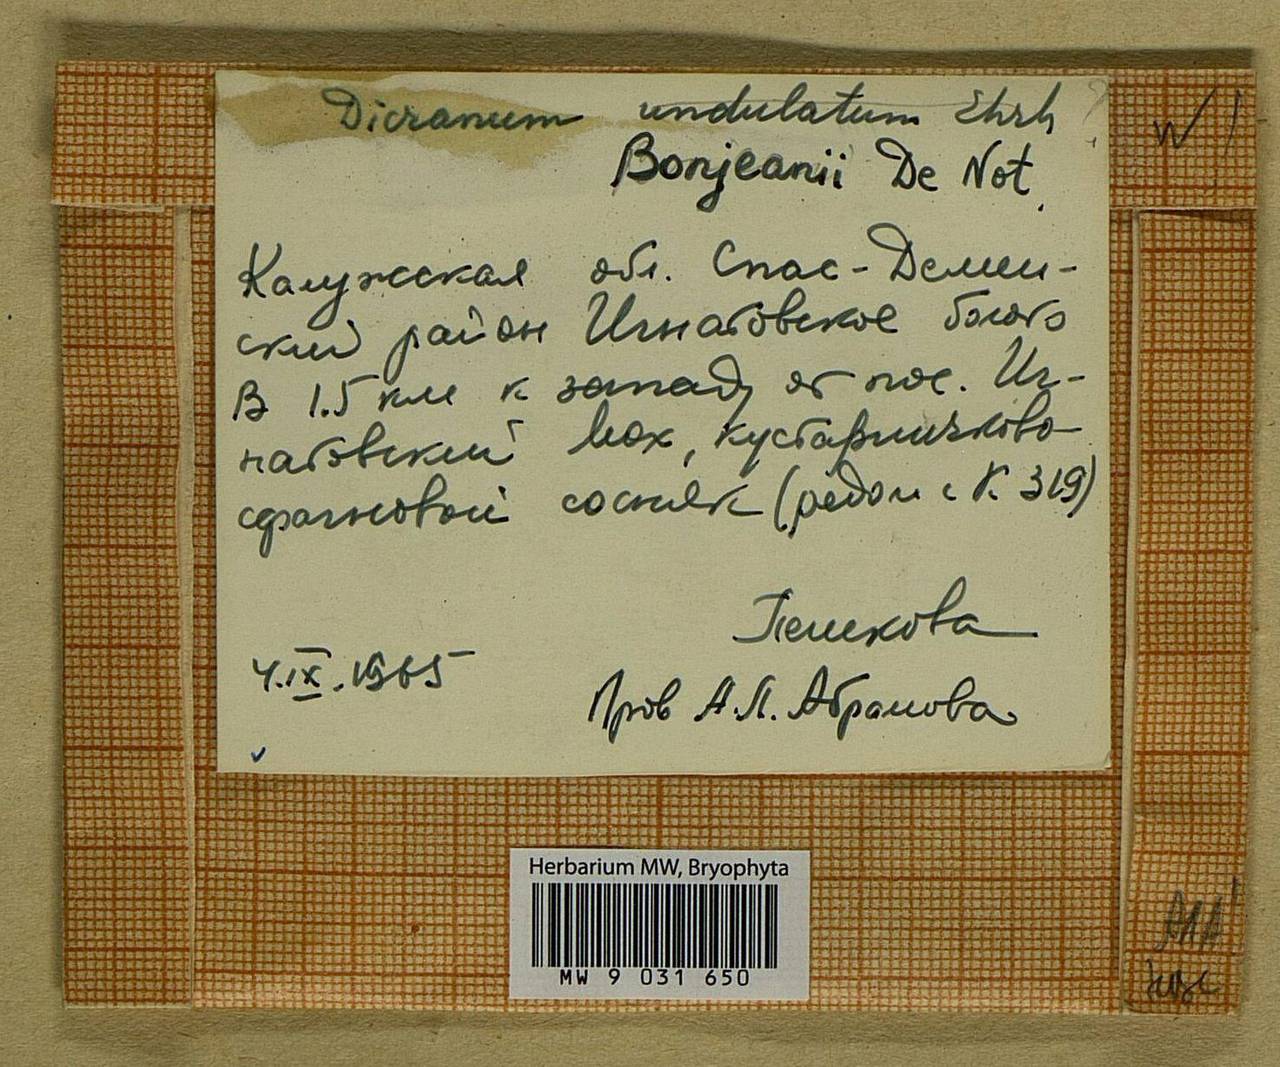 Dicranum undulatum Ehrh
Bonjeanii De Not.
Калужская обл. Спас-Демен-
ский район Игнатовское болото
В 1.5 км к западу от пос. Иг-
натовский Мох, кустарничково
сфагновый сосняк (рядом с К 319)
Пешкова
4.IX.1965
Пров А.Л. Абрамова
Herbarium MW, Bryophyta
MW 9 031 650